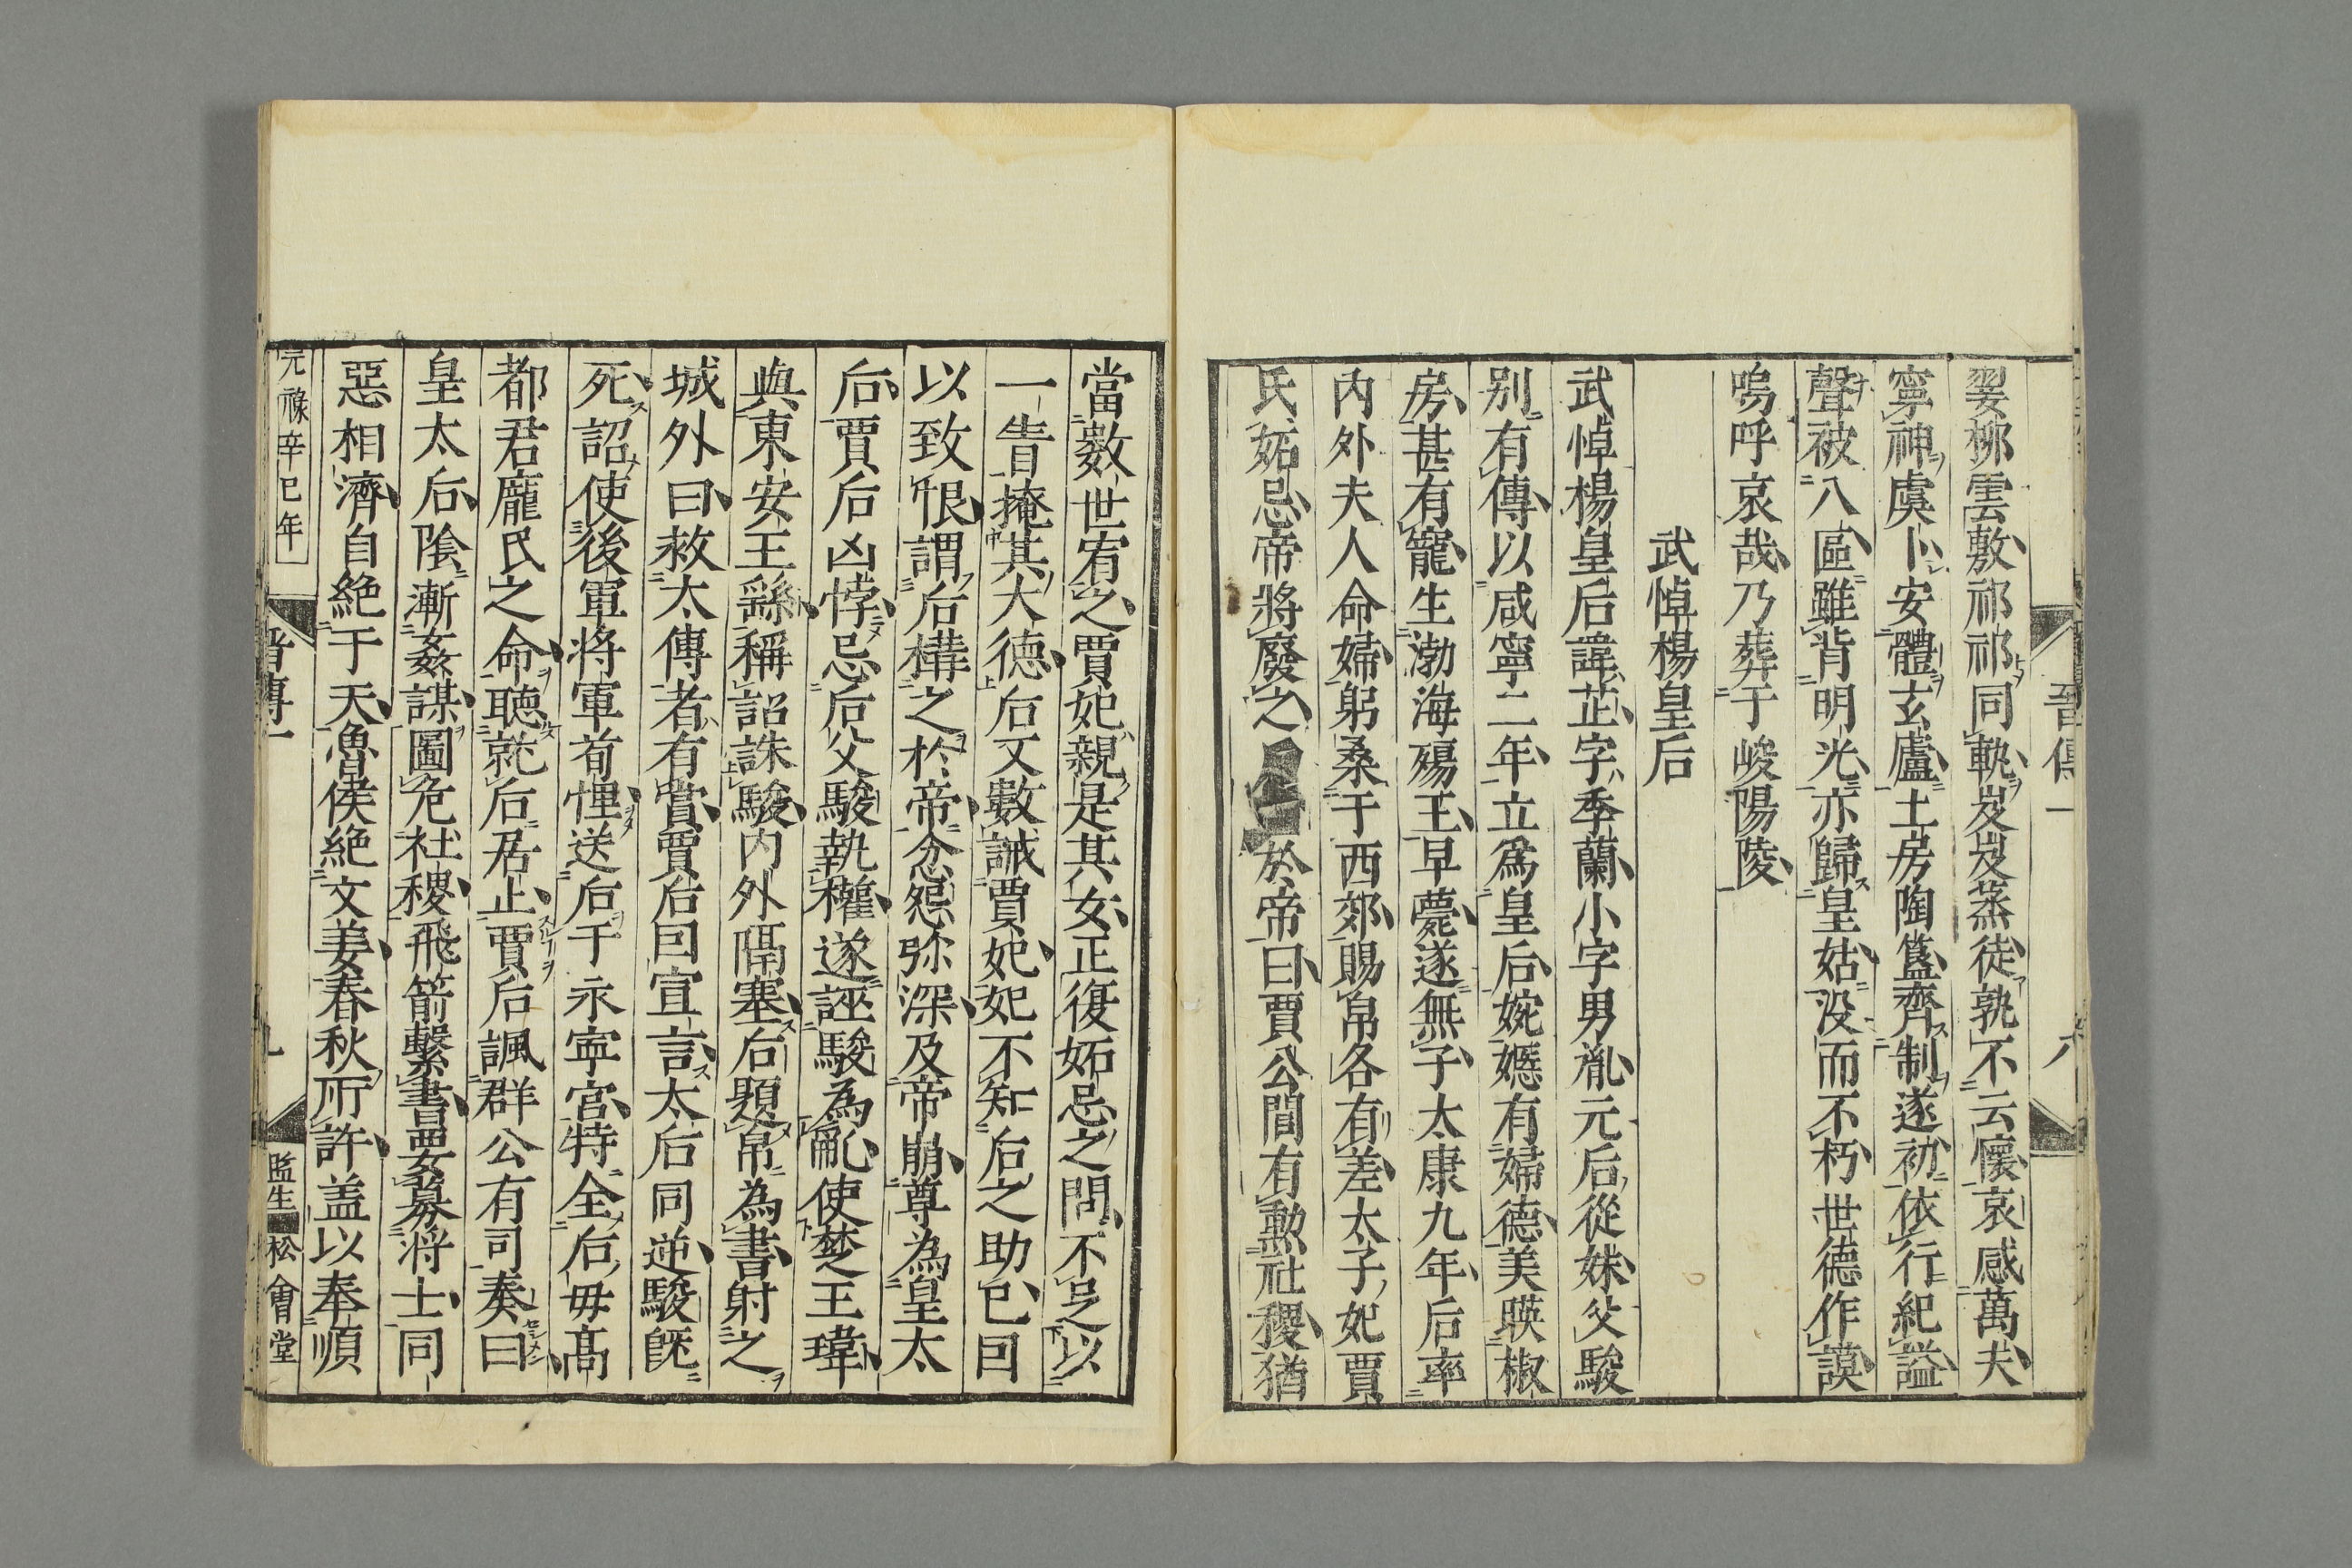 晉傳一
翣柳雲敷祁祁同軌岌岌蒸徒孰不云懷哀感萬夫
寧神虞卜安體玄廬土房陶簋齊制遂初依行紀謚
聲被八區雖背明光亦歸皇姑没而不朽世德作謨
嗚呼哀哉乃葬于峻陽陵
武悼楊皇后
武悼楊皇后諱芷字季蘭小字男胤元后從妹父駿
别有傳以咸寧二年立爲皇后婉嫕有婦德美暎椒
房甚有寵生渤海殤王早薨遂無子太康九年后率
内外夫人命婦躬桑于西郊賜帛各有差太子妃賈
氏妬忌帝將廢之於帝曰賈公閭有勲社稷猶
當數世宥之賈妃親是其女正復妬忌之間不足以
一眚掩其大德后又數誡賈妃妃不知后之助已因
以致恨謂后構之於帝忿怨弥深及帝崩尊為皇太
后賈后凶悖忌后父駿執權遂誣駿為亂使楚王瑋
與東安王繇稱詔誅駿内外隔塞后題帛為書射之
城外曰救太傅者有賞賈后因宣言太后同逆駿旣
死詔使後軍将軍荀悝送后于永寧宫特全后毋髙
都君龐氏之命聴就后居止賈后諷群公有司奏曰
皇太后隂漸姦謀圖危社稷飛箭繫書要募将士同
惡相濟自絶于天魯侯絶文姜春秋所許盖以奉順
元祿辛巳年
晋傳一
九
監生
松會堂